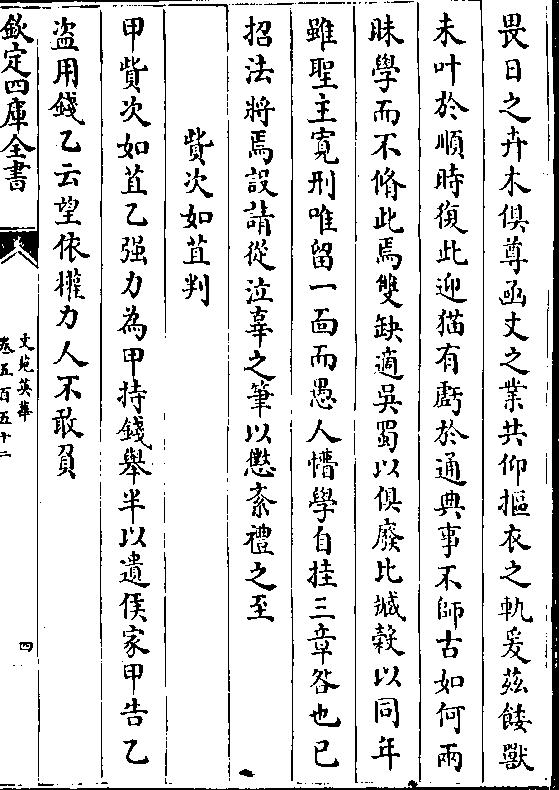 畏日之卉木俱尊函丈之業共仰摳衣之軌爰茲餧獸
未叶於順時復此迎猫有虧於通典事不師古如何兩
昧學而不脩此焉雙缺適吳蜀以俱廢比臧榖以同年
雖聖主寛刑唯留一面而愚人懵學自挂三章咎也已
招法將焉設請從泣辜之筆以懲紊禮之至
貲次如苴判
甲貲次如苴乙强力為甲持錢舉半以遺侯家甲告乙
盗用錢乙云望依權力人不敢負
欽定四庫全書
文苑英華
卷五百五十二
四